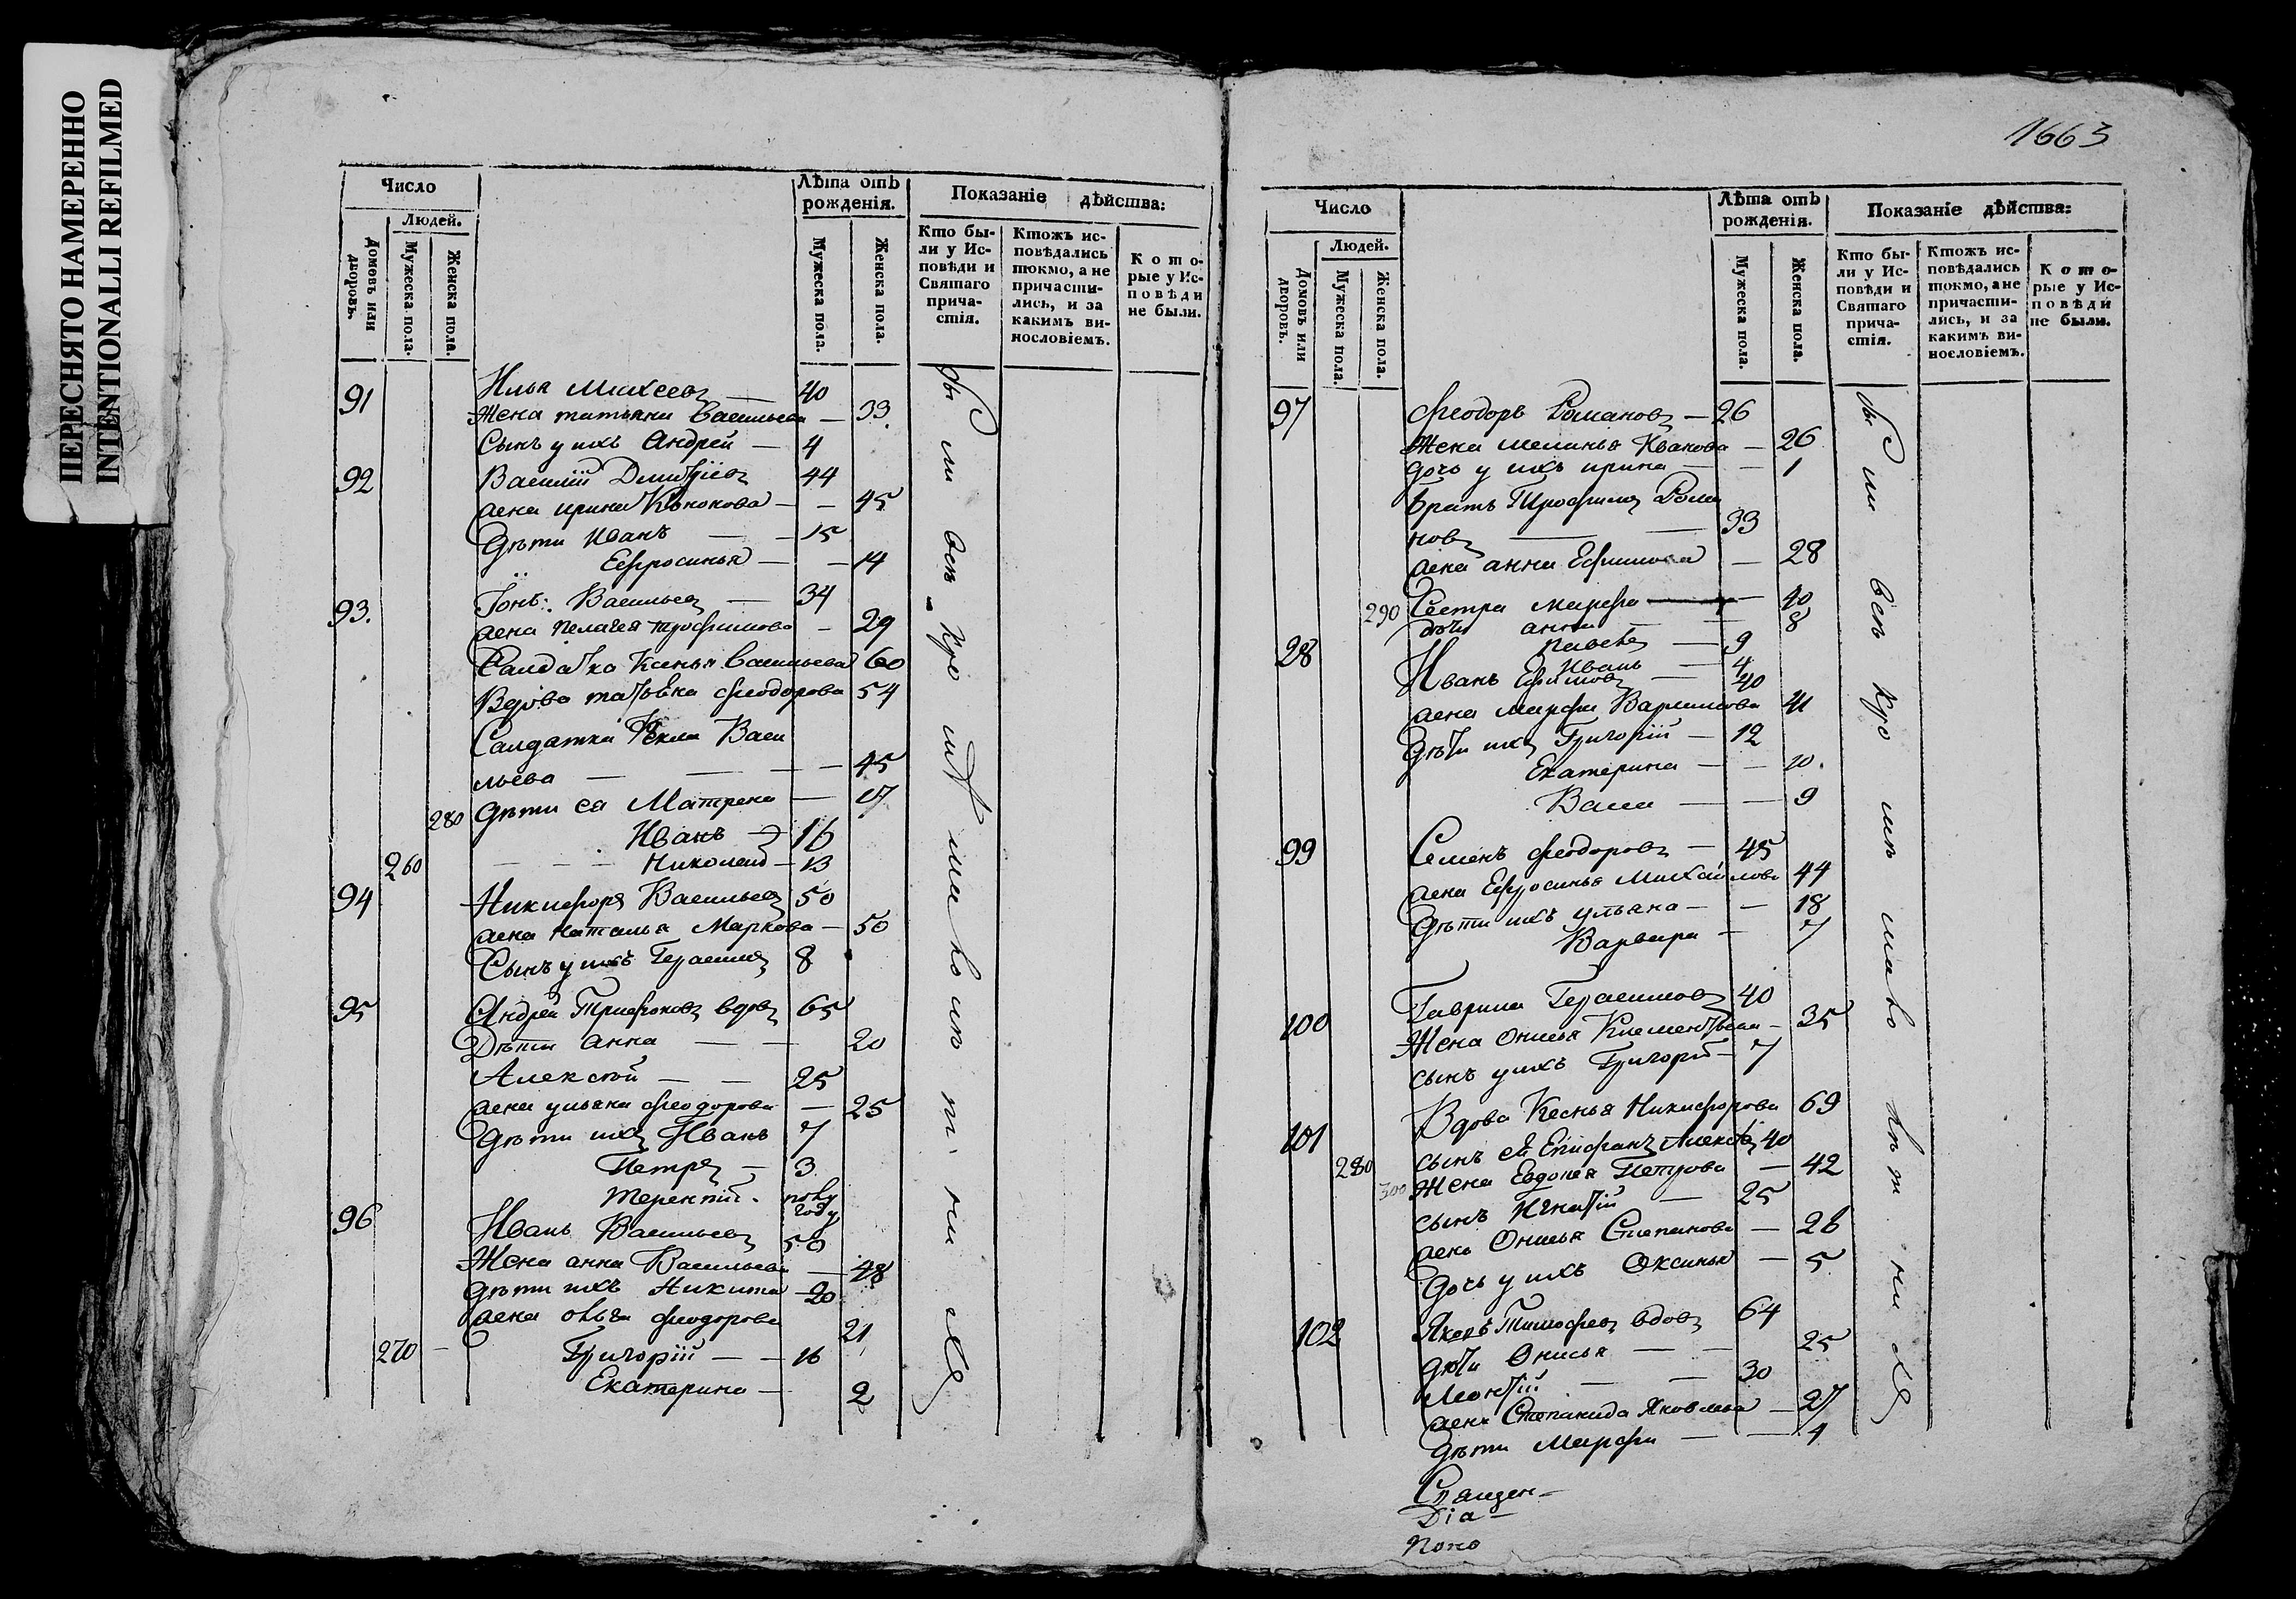 ПЕРЕСНЯТО НАМЕРЕННО
INTENTIONALLI REFILMED
Число
Людей.
Домовъ или дворовъ.
Мужеска пола.
Женска пола.
Лѣта отъ рожденія.
Мужеска пола.
Женска пола.
Показаніе дѣйства:
Кто были у Исповѣди и Святаго причастія.
Ктожъ исповѣдались токмо, а не причастились, и за какимъ винословіемъ.
Которые у Исповѣди не были.
91 Илья Михеевъ — 40
Жена татьяна Васильева — 33.
Сынъ у ихъ Андрей — 4
92 Василій Дмитріевъ 44
жена ирина — 45
Дѣти Иванъ — 15
Ефросинья — 14
93. Іонъ: Васильевъ — 34
жена пелагея трофимова — 29
Салдатка Ксенья Васильева 60
Вдова феодорова 54
Салдатка Фекла Васи
льева — 45
280 дѣти ея Матрена — 17
Иванъ — 16
260 Николай — 13
94 Никифоръ Васильевъ 50
жена наталья Маркова — 50
Сынъ у ихъ Герасимъ 8
95 Андрей Трифоновъ вдовъ 65
Дѣти Анна — 20
Алексей — 25
жена ульяна феодорова — 25
дѣти ихъ Иванъ 7
Петръ — 3
терентій. полу году
96 Иванъ Васильевъ 50
Жена анна Васильева — 48
дѣти ихъ Никита — 20
жена ольга феодорова 21
270 Григорій — 16
Екатерина — 2
1663
Число
Людей.
Домовъ или дворовъ.
Мужеска пола.
Женска пола.
Лѣта отъ рожденія.
Мужеска пола.
Женска пола.
Показаніе дѣйства:
Кто были у Исповѣди и Святаго причастія.
Ктожъ исповѣдались токмо, а не причастились, и за какимъ винословіемъ.
Которые у Исповѣди не были.
97 Феодоръ Романовъ — 26
Жена меланья Иванова — 26
дочь у ихъ ирина — 1
Братъ Трофимъ Рома
новъ — 33
жена анна Ефимова — 28
290 Сестра марфа — 40
анна — 8
— 9
Иванъ — 4
28 Иванъ Ефимовъ — 40
жена марфа 41
дѣти ихъ Григорій — 12
Екатерина — 10.
Васса — 9
99 Семенъ феодоровъ — 45
жена Ефросинья Михайлова 44
дѣти ихъ ульяна — 18
Варвара — 7
100 Гаврила Герасимовъ 40
Жена Онисья Клементьева — 35
сынъ у ихъ Григорій — 7
101 Вдова Ксенья Никифорова 69
280 сынъ ея Епифанъ 40
300 Жена Евдокея Петрова — 42
сынъ Игнатій — 25
жена Онисья Степанова — 26
дочь у ихъ Оксинья — 5
102 Тимофеевъ вдовъ 64
дѣти Онисья — 25
Леонтій — 30
жена Степанида Яковлева — 27
дѣти Марфа — 4
Священ—
Діа—
Поно